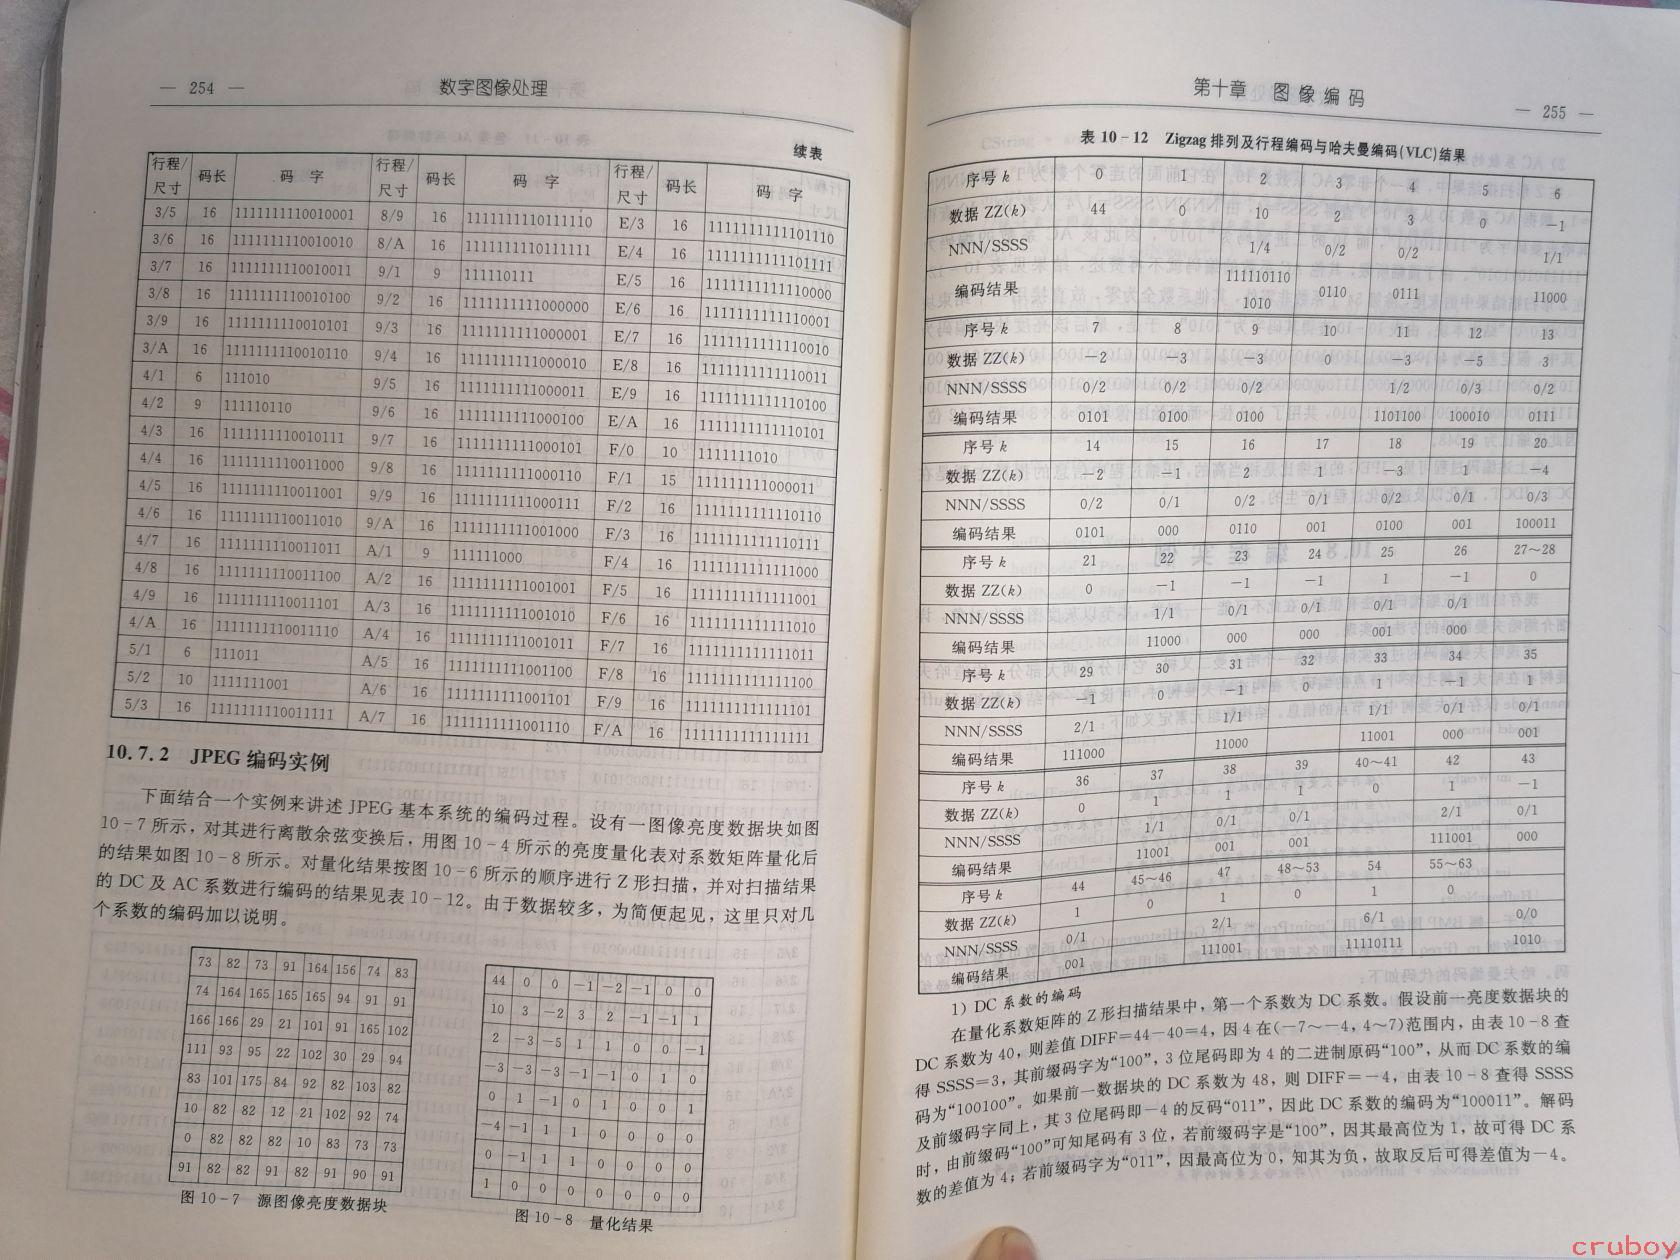 — 254 —
数字图像处理
续表
行程/尺寸 码长 码 字 行程/尺寸 码长 码 字 行程/尺寸 码长 码 字
3/5 16 1111111110010001 8/9 16 1111111110111110 E/3 16 1111111111101110
3/6 16 1111111110010010 8/A 16 1111111110111111 E/4 16 1111111111101111
3/7 16 1111111110010011 9/1 9 111110111 E/5 16 1111111111110000
3/8 16 1111111110010100 9/2 16 1111111111000000 E/6 16 1111111111110001
3/9 16 1111111110010101 9/3 16 1111111111000001 E/7 16 1111111111110010
3/A 16 1111111110010110 9/4 16 1111111111000010 E/8 16 1111111111110011
4/1 6 111010 9/5 16 1111111111000011 E/9 16 1111111111110100
4/2 9 111110110 9/6 16 1111111111000100 E/A 16 1111111111110101
4/3 16 1111111110010111 9/7 16 1111111111000101 F/0 10 1111111010
4/4 16 1111111110011000 9/8 16 1111111111000110 F/1 15 111111111000011
4/5 16 1111111110011001 9/9 16 1111111111000111 F/2 16 1111111111110110
4/6 16 1111111110011010 9/A 16 1111111111001000 F/3 16 1111111111110111
4/7 16 1111111110011011 A/1 9 111111000 F/4 16 1111111111111000
4/8 16 1111111110011100 A/2 16 1111111111001001 F/5 16 1111111111111001
4/9 16 1111111110011101 A/3 16 1111111111001010 F/6 16 1111111111111010
4/A 16 1111111110011110 A/4 16 1111111111001011 F/7 16 1111111111111011
5/1 6 111011 A/5 16 1111111111001100 F/8 16 1111111111111100
5/2 10 1111111001 A/6 16 1111111111001101 F/9 16 1111111111111101
5/3 16 1111111110011111 A/7 16 1111111111001110 F/A 16 1111111111111111
10.7.2 JPEG 编码实例
下面结合一个实例来讲述 JPEG 基本系统的编码过程。设有一图像亮度数据块如图
10-7 所示，对其进行离散余弦变换后，用图 10-4 所示的亮度量化表对系数矩阵量化后
的结果如图 10-8 所示。对量化结果按图 10-6 所示的顺序进行 Z 形扫描，并对扫描结果
的 DC 及 AC 系数进行编码的结果见表 10-12。由于数据较多，为简便起见，这里只对几
个系数的编码加以说明。
73 82 73 91 164 156 74 83
74 164 165 165 165 94 91 91
166 166 29 21 101 91 165 102
111 93 95 22 102 30 29 94
83 101 175 84 92 82 103 82
10 82 82 12 21 102 92 74
0 82 82 82 10 83 73 73
91 82 82 91 82 91 90 91
图 10-7 源图像亮度数据块
44 0 0 -1 -2 -1 0 0
10 3 -2 3 2 -1 -1 1
2 -3 -5 1 1 0 0 -1
-3 -3 -3 -1 -1 0 1 0
0 1 -1 0 1 0 0 1
-4 -1 1 1 0 0 0 0
0 -1 1 1 0 0 0 0
1 0 0 0 0 0 0 0
图 10-8 量化结果
第十章 图像编码
— 255 —
表 10-12 Zigzag 排列及行程编码与哈夫曼编码(VLC)结果
序号 k 0 1 2 3 4 5 6
数据 ZZ(k) 44 0 10 2 3 0 -1
NNN/SSSS 1/4 0/2 0/2 1/1
编码结果 111110110 1010 0110 0111 11000
序号 k 7 8 9 10 11 12 13
数据 ZZ(k) -2 -3 -3 0 -3 -5 3
NNN/SSSS 0/2 0/2 0/2 1/2 0/3 0/2
编码结果 0101 0100 0100 1101100 100010 0111
序号 k 14 15 16 17 18 19 20
数据 ZZ(k) -2 -1 2 1 -3 1 -4
NNN/SSSS 0/2 0/1 0/2 0/1 0/2 0/1 0/3
编码结果 0101 000 0110 001 0100 001 100011
序号 k 21 22 23 24 25 26 27～28
数据 ZZ(k) 0 -1 -1 -1 1 -1 0
NNN/SSSS 1/1 0/1 0/1 0/1 0/1
编码结果 11000 000 000 001 000
序号 k 29 30 31 32 33 34 35
数据 ZZ(k) -1 0 -1 0 1 -1 1
NNN/SSSS 2/1 1/1 1/1 0/1 0/1
编码结果 111000 11000 11001 000 001
序号 k 36 37 38 39 40～41 42 43
数据 ZZ(k) 0 1 1 1 0 1 -1
NNN/SSSS 1/1 0/1 0/1 2/1 0/1
编码结果 11001 001 001 111001 000
序号 k 44 45～46 47 48～53 54 55～63
数据 ZZ(k) 1 0 1 0 1 0
NNN/SSSS 0/1 2/1 6/1 0/0
编码结果 001 111001 11110111 1010
1) DC 系数的编码
在量化系数矩阵的 Z 形扫描结果中，第一个系数为 DC 系数。假设前一亮度数据块的
DC 系数为 40，则差值 DIFF=44-40=4，因 4 在(-7～-4, 4～7)范围内，由表 10-8 查
得 SSSS=3，其前缀码字为“100”，3 位尾码即为 4 的二进制原码“100”，从而 DC 系数的编
码为“100100”。如果前一数据块的 DC 系数为 48，则 DIFF=-4，由表 10-8 查得 SSSS
及前缀码字同上，其 3 位尾码即-4 的反码“011”，因此 DC 系数的编码为“100011”。解码
时，由前缀码“100”可知尾码有 3 位，若前缀码字是“100”，因其最高位为 1，故可得 DC 系
数的差值为 4；若前缀码字为“011”，因最高位为 0，知其为负，故取反后可得差值为-4。
cruboy